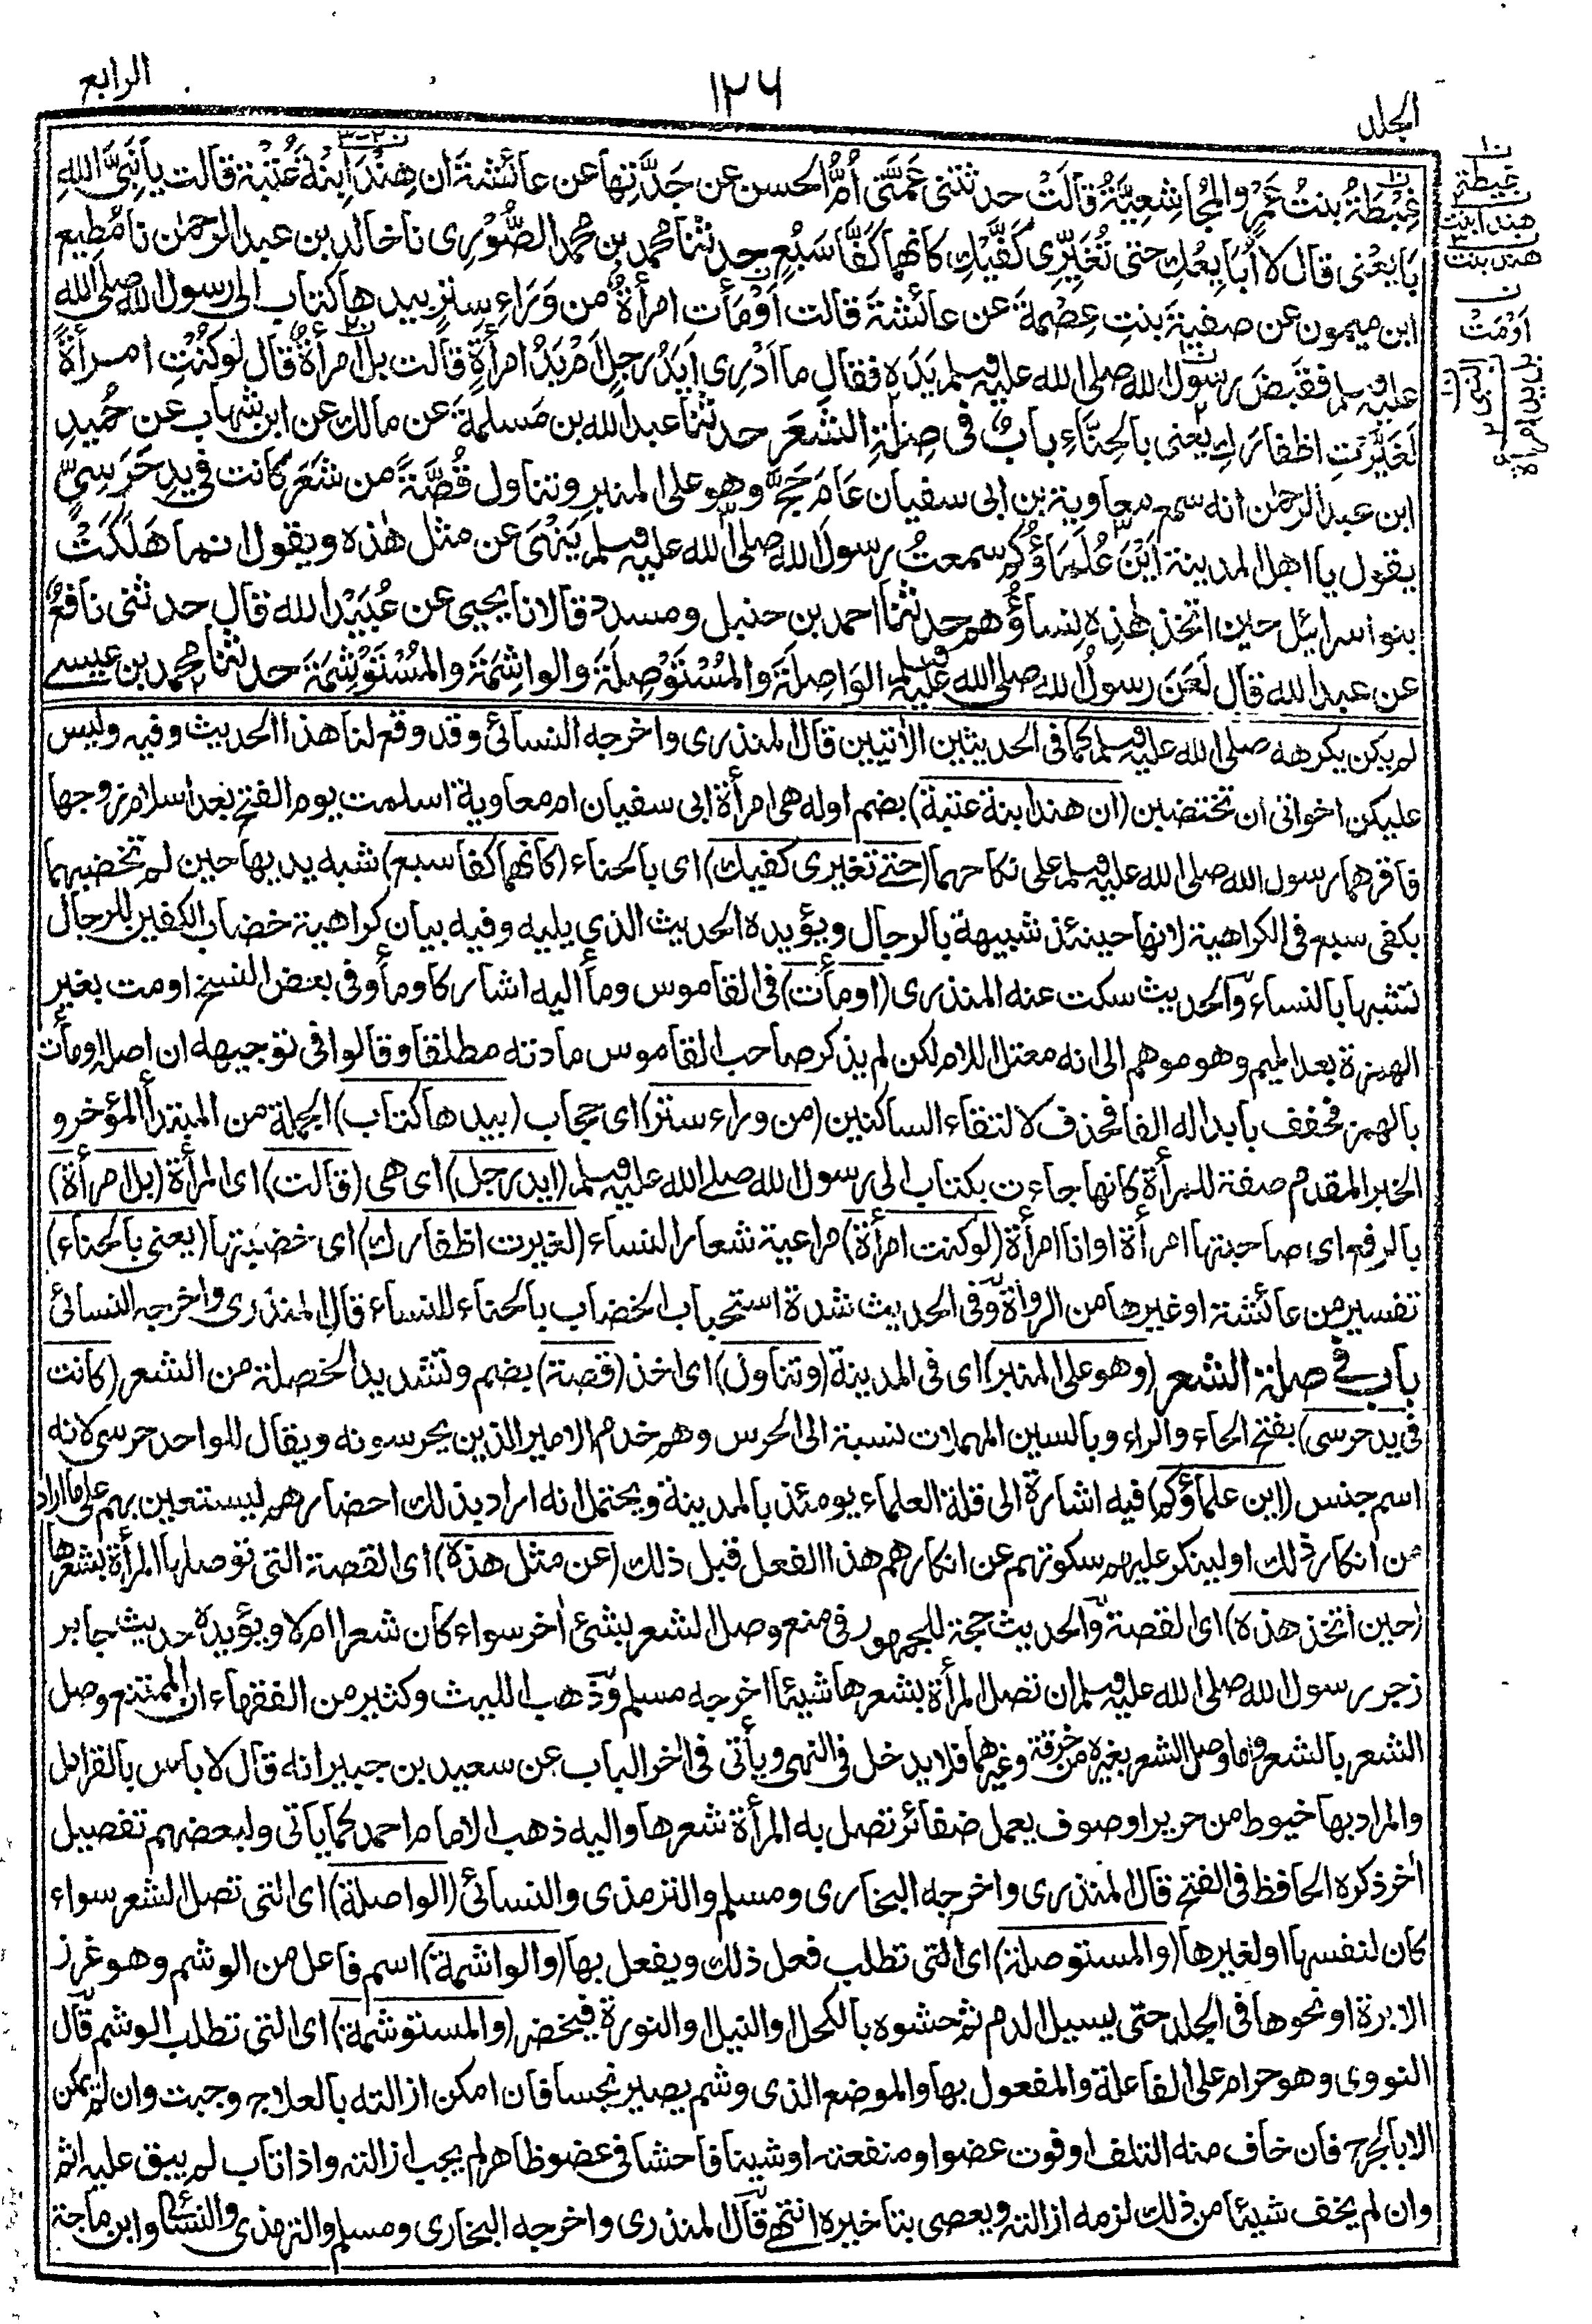 الجلد
١٢٦
الرابع
غِبْطَةُ بنتُ عَمْرٍو المُجَاشِعِيَّةُ قَالَتْ حدثتنى عَمَّتى أُمُّ الحسن عن جَدَّتِها عن عائشةَ ان هِنْدَا ابنةَ عُتْبة قالت يا نَبِىَّ اللهِ
بَايِعْنى قال لا أُبَايِعُكِ حتى تُغَيِّرِى كَفَّيْكِ كانهما كَفَّا سَبُعٍ حدثنا محمد بن محمد الصُّوْرِى نا خالد بن عبد الرحمٰن نا مُطِيع
ابن ميمون عن صفيةَ بنتِ عِصْمةَ عن عائشةَ قالت اَوْمَأَت امرأةٌ من وَرَاءِ سِتْرٍ بيدها كتاب الى رسول الله صلى الله
عليه وسلم فقَبَضَ رسول الله صلى الله عليه وسلم يَدَه فقال ما اَدْرِى اَيَدُ رجلٍ اَم يَدُ امرأةٍ قالت بل امرأةٌ قال لو كنتِ امرأةً
لَغَيَّرْتِ اظفارَكِ يعنى بالحِنَّاءِ بابٌ فى صِلَةِ الشَّعر حدثنا عبد الله بن مَسلمةَ عن مالك عن ابن شهاب عن حُمَيدِ
ابن عبد الرحمٰن انه سمع معاوية بن ابى سفيان عَامَ حَجَّ وهو على المنبرِ وتناول قُصَّةً من شَعَرٍ كانت فى يدِ حَرَسِىٍّ
يقول يا اهل المدينة اَيْنَ عُلَمَاؤُكم سمعتُ رسول الله صلى الله عليه وسلم يَنْهَى عن مثل هٰذه ويقول انما هَلَكَتْ
بنو اسرائيل حين اتخذ هٰذه نِساؤُهم حدثنا احمد بن حنبل ومسدد قالا نا يحيى عن عُبَيْد الله قال حدثنى نافعٌ
عن عبد الله قال لَعَنَ رسولُ الله صلى الله عليه وسلم الوَاصِلَةَ والمُسْتَوْصِلَةَ والواشِمَةَ والمُسْتَوْشِمَةَ حدثنا محمد بن عيسى
لم يكن يكرهه صلى الله عليه وسلم كما فى الحديثين الآتيين قال المنذرى واخرجه النسائى وقد وقع لنا هذا الحديث وفيه وليس
عليكن اخواتى ان تختضبن (ان هندا ابنة عتبة) بضم اوله هى امرأة ابى سفيان ام معاوية اسلمت يوم الفتح بعد اسلام زوجها
فاقرهما رسول الله صلى الله عليه وسلم على نكاحهما (حتى تغيرى كفيك) اى بالحناء (كانهما كفا سبع) شبه يديها حين لم تخضبهما
بكفى سبع فى الكراهية لانها حينئذ شبيهة بالرجال ويؤيده الحديث الذى يليه وفيه بيان كراهية خضاب الكفين للرجال
تشبها بالنساء والحديث سكت عنه المنذرى (اومأت) فى القاموس ومأ اليه اشار كاومأ وفى بعض النسخ اومت بغير
الهمزة بعد الميم وهو موهم الى انه معتل اللام لكن لم يذكر صاحب القاموس مادته مطلقا وقالوا فى توجيهه ان اصله اومأت
بالهمز فخفف بابداله الفا فحذف لالتقاء الساكنين (من وراء ستر) اى حجاب (بيدها كتاب) الجملة من المبتدأ المؤخر و
الخبر المقدم صفة للمرأة كانها جاءت بكتاب الى رسول الله صلى الله عليه وسلم (ايد رجل) اى هى (قالت) اى المرأة (بل امرأة)
بالرفع اى صاحبتها امرأة او انا امرأة (لو كنت امرأة) مراعية شعار النساء (لغيرت اظفارك) اى خضبتها (يعنى بالحناء)
تفسير من عائشة او غيرها من الرواة وفى الحديث شدة استحباب الخضاب بالحناء للنساء قال المنذرى واخرجه النسائى
باب فى صلة الشعر (وهو على المنبر) اى فى المدينة (وتناول) اى اخذ (قصة) بضم وتشديد الخصلة من الشعر (كانت
فى يد حرسى) بفتح الحاء والراء وبالسين المهملات نسبة الى الحرس وهم خدم الامير الذين يحرسونه ويقال للواحد حرسى لانه
اسم جنس (اين علماؤكم) فيه اشارة الى قلة العلماء يومئذ بالمدينة ويحتمل انه اراد بذلك احضارهم ليستعين بهم على ما اراد
من انكار ذلك او لينكر عليهم سكوتهم عن انكارهم هذا الفعل قبل ذلك (عن مثل هذه) اى القصة التى توصلها المرأة بشعرها
(حين اتخذ هذه) اى القصة والحديث حجة للجمهور فى منع وصل الشعر بشئ اٰخر سواء كان شعرا ام لا ويؤيده حديث جابر
زجر رسول الله صلى الله عليه وسلم ان تصل المرأة بشعرها شيئا اخرجه مسلم وذهب الليث وكثير من الفقهاء ان الممتنع وصل
الشعر بالشعر واما وصل الشعر بغيره من خرقة وغيرها فلا يدخل فى النهى ويأتى فى اٰخر الباب عن سعيد بن جبير انه قال لا باس بالقرامل
والمراد بها خيوط من حرير او صوف يعمل ضفائر تصل به المرأة شعرها واليه ذهب الامام احمد كما ياتى ولبعضهم تفصيل
اٰخر ذكره الحافظ فى الفتح قال المنذرى واخرجه البخارى ومسلم والترمذى والنسائى (الواصلة) اى التى تصل الشعر سواء
كان لنفسها او لغيرها (والمستوصلة) اى التى تطلب فعل ذلك ويفعل بها (والواشمة) اسم فاعل من الوشم وهو غرز
الابرة او نحوها فى الجلد حتى يسيل الدم ثم حشوه بالكحل او النيل او النورة فيخضر (والمستوشمة) اى التى تطلب الوشم قال
النووى وهو حرام على الفاعلة والمفعول بها والموضع الذى وشم يصير نجسا فان امكن ازالته بالعلاج وجبت وان لم يمكن
الا بالجرح فان خاف منه التلف او فوت عضو او منفعته او شينا فاحشا فى عضو ظاهر لم يجب ازالته واذا تاب لم يبق عليه اثم
وان لم يخف شيئا من ذلك لزمه ازالته ويعصى بتاخيره انتهى قال المنذرى واخرجه البخارى ومسلم والترمذى والنسائى وابن ماجة
غبطة
هندا ابنت
هند بنت
اَوْمَتْ